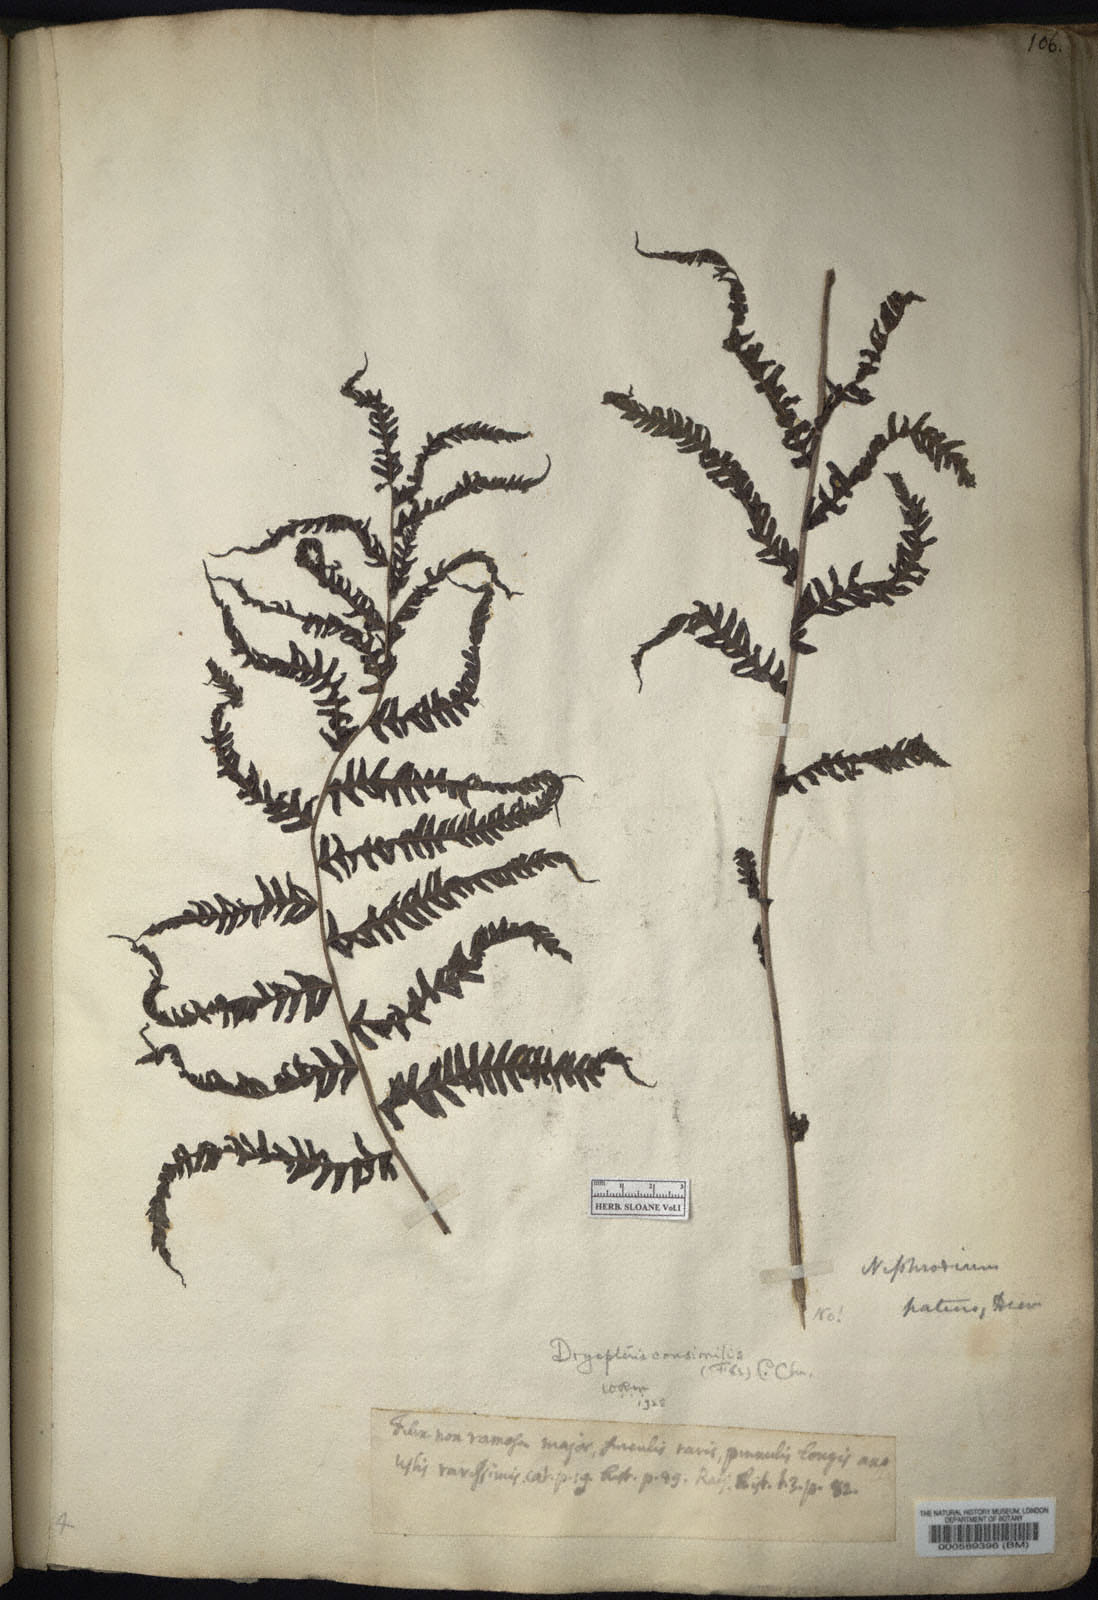 106.
mm 1 2 3
HERB. SLOANE Vol.1
Nephrodium
patens, Desv
No!
Dryopteris consimilis
(Fée) C. Chr.
1922
Filix non ramosa major, surculis raris, pinnulis longis ang
ustis rarissimis. Cat. p. 19. Hist. p. 89. Raij. Hist. t. 3. p. 82.
4
THE NATURAL HISTORY MUSEUM, LONDON
DEPARTMENT OF BOTANY
000589396 (BM)